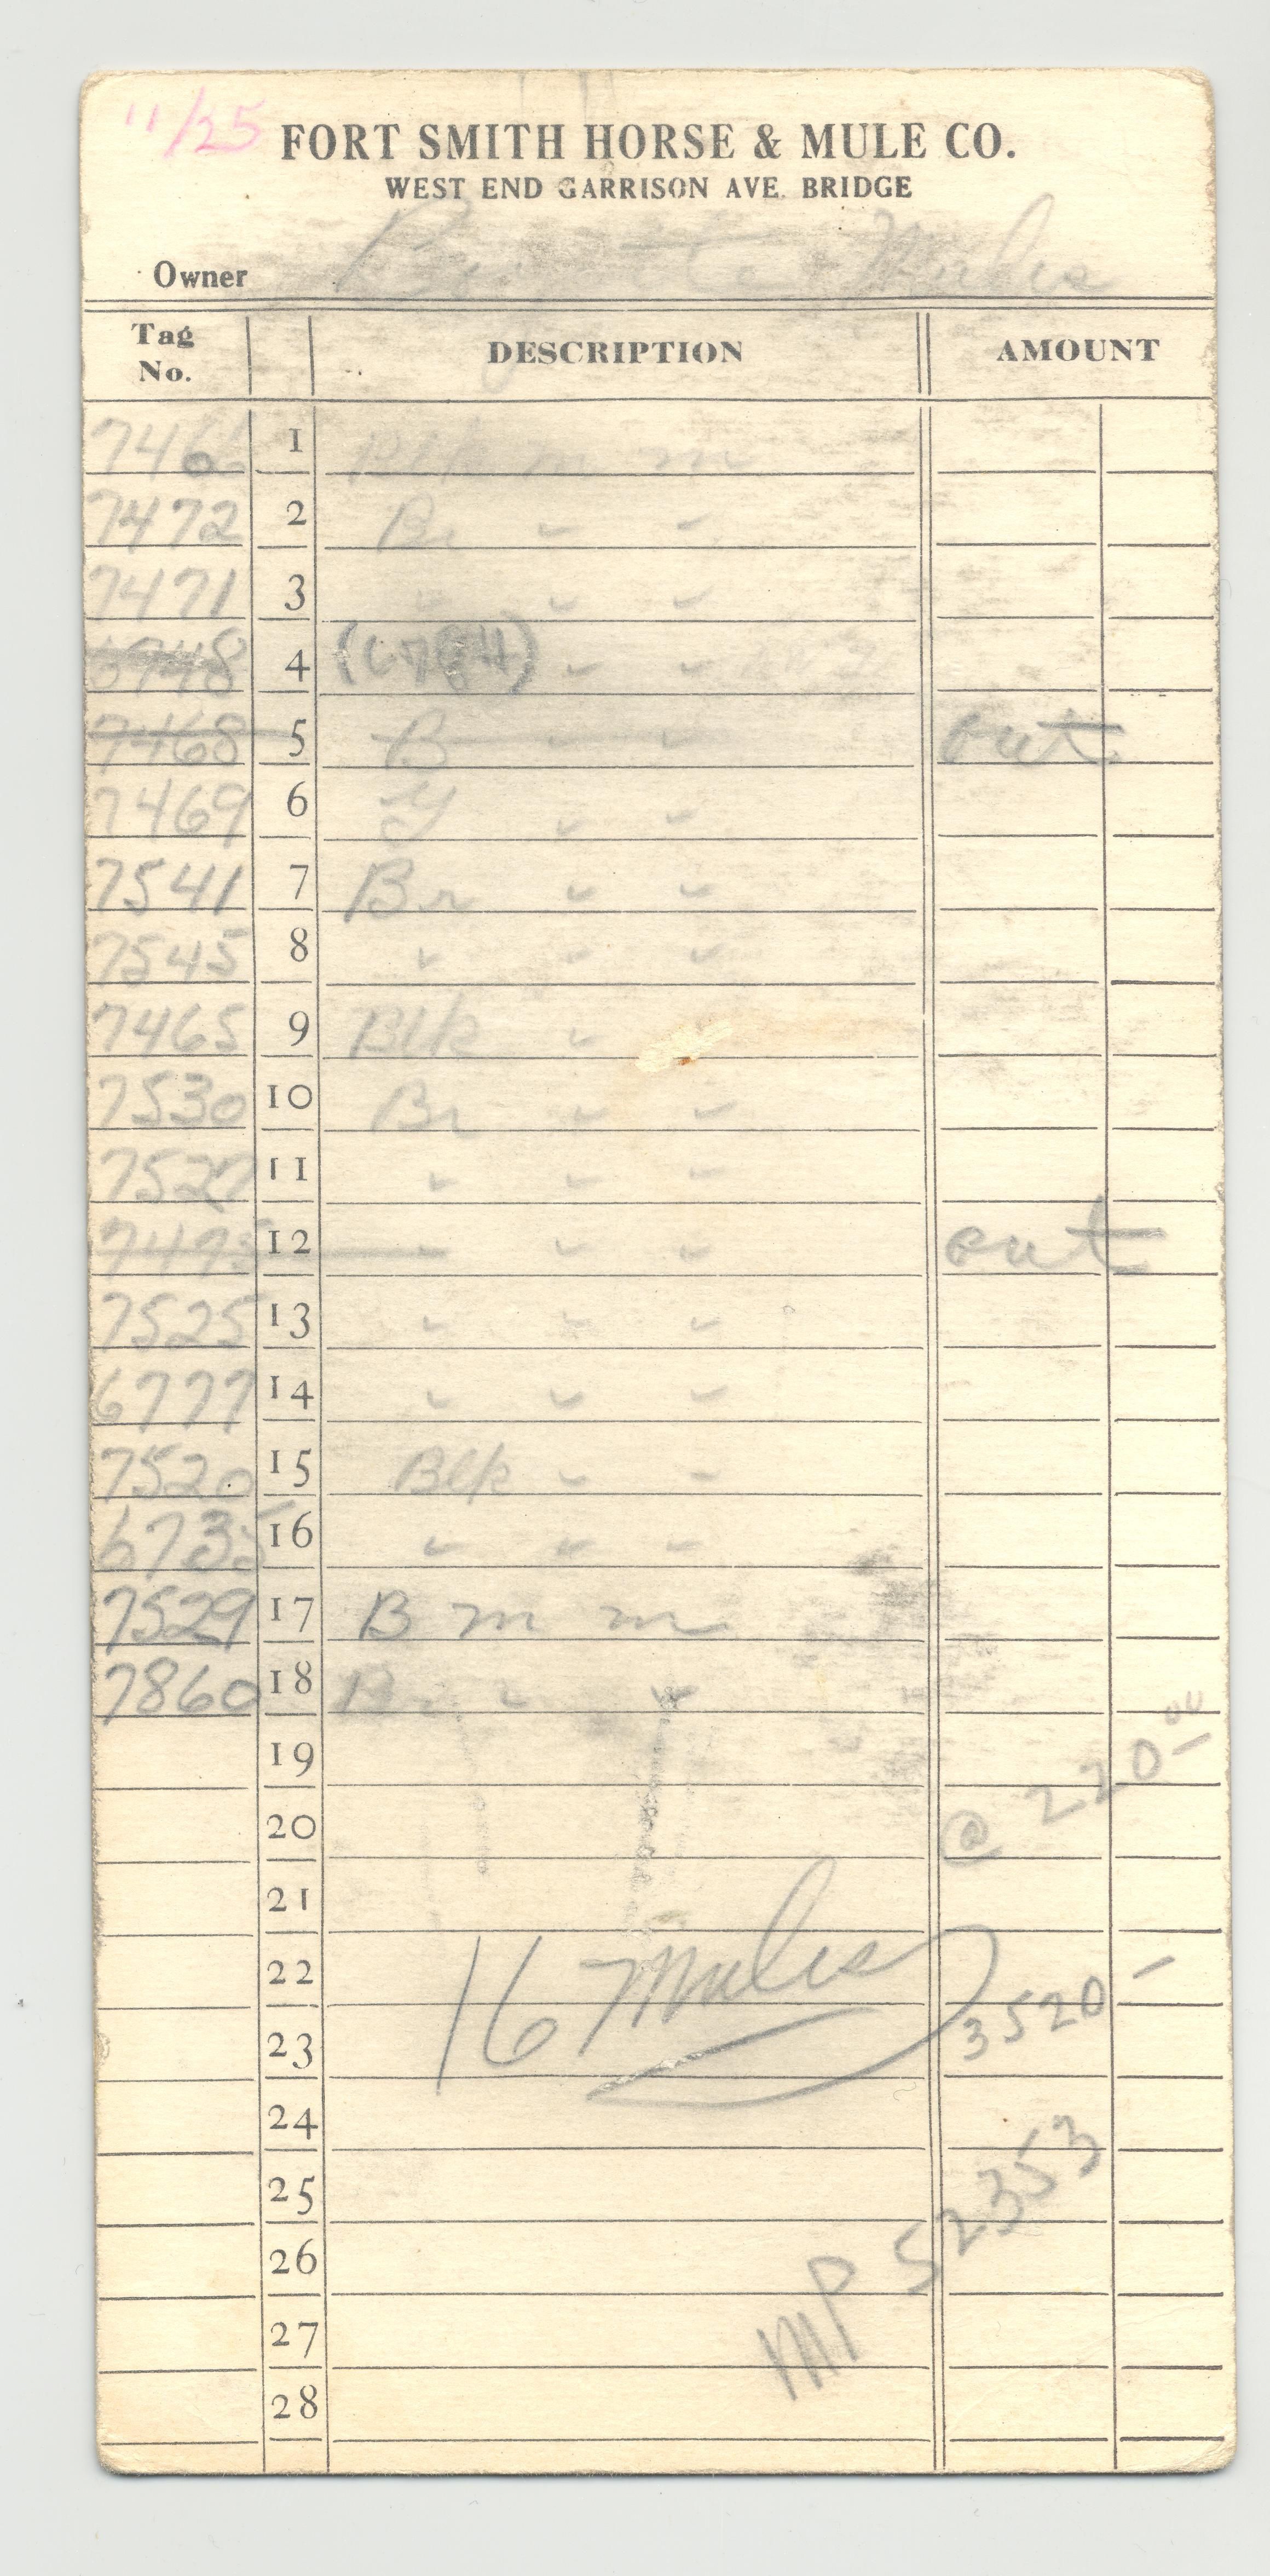 11/25
FORT SMITH HORSE & MULE CO.
WEST END GARRISON AVE. BRIDGE
Owner Mules
Tag No. DESCRIPTION AMOUNT
1 Blk m m
7472 2 Br ✓ ✓
7471 3 ✓ ✓ ✓
4 ✓ ✓
7468 5 B ✓ ✓ out
7469 6 Gy ✓ ✓
7541 7 Br ✓ ✓
7545 8 ✓ ✓ ✓
7465 9 Blk ✓
7530 10 Br ✓ ✓
7527 11 ✓ ✓ ✓
7475 12 ✓ ✓ ✓ out
7525 13 ✓ ✓ ✓
6777 14 ✓ ✓ ✓
7520 15 Blk ✓ ✓
6735 16 ✓ ✓ ✓
7529 17 B m m
7860 18 Br ✓ ✓
19
20 @ 220 00
21
22 16 Mules
23 3520 —
24
25
26 MP 52353
27
28